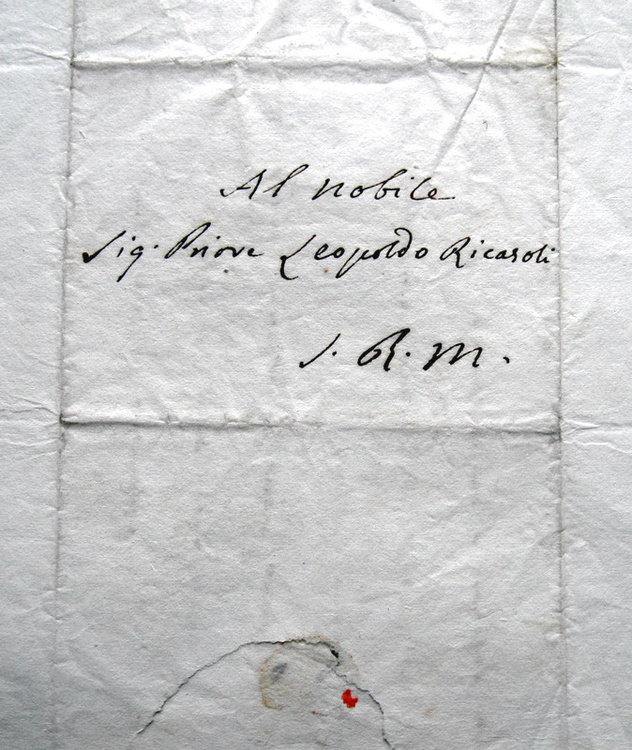 Al nobile
Sig. Priore Leopoldo Ricasoli
S. R. M.